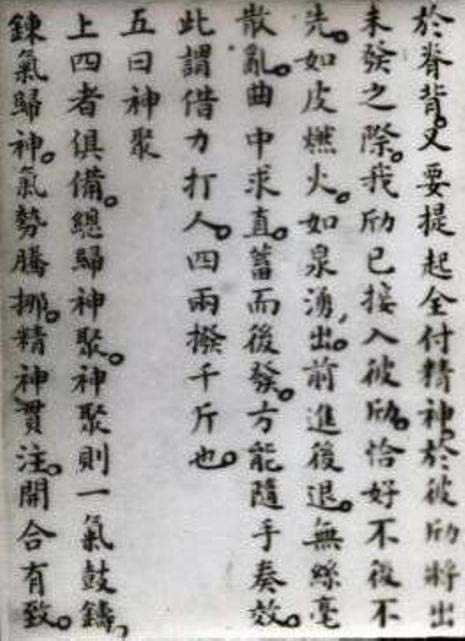 於脊背。又要提起全付精神。於彼劤將出
未發之際。我劤已接入彼劤。恰好不後不
先。如皮燃火。如泉湧出。前進後退。無絲毫
散亂。曲中求直。蓄而後發。方能隨手奏效。
此謂借力打人。四兩撥千斤也。
五曰神聚
上四者俱備。總歸神聚。神聚則一氣鼓鑄，
鍊氣歸神。氣勢騰挪。精神貫注。開合有致。